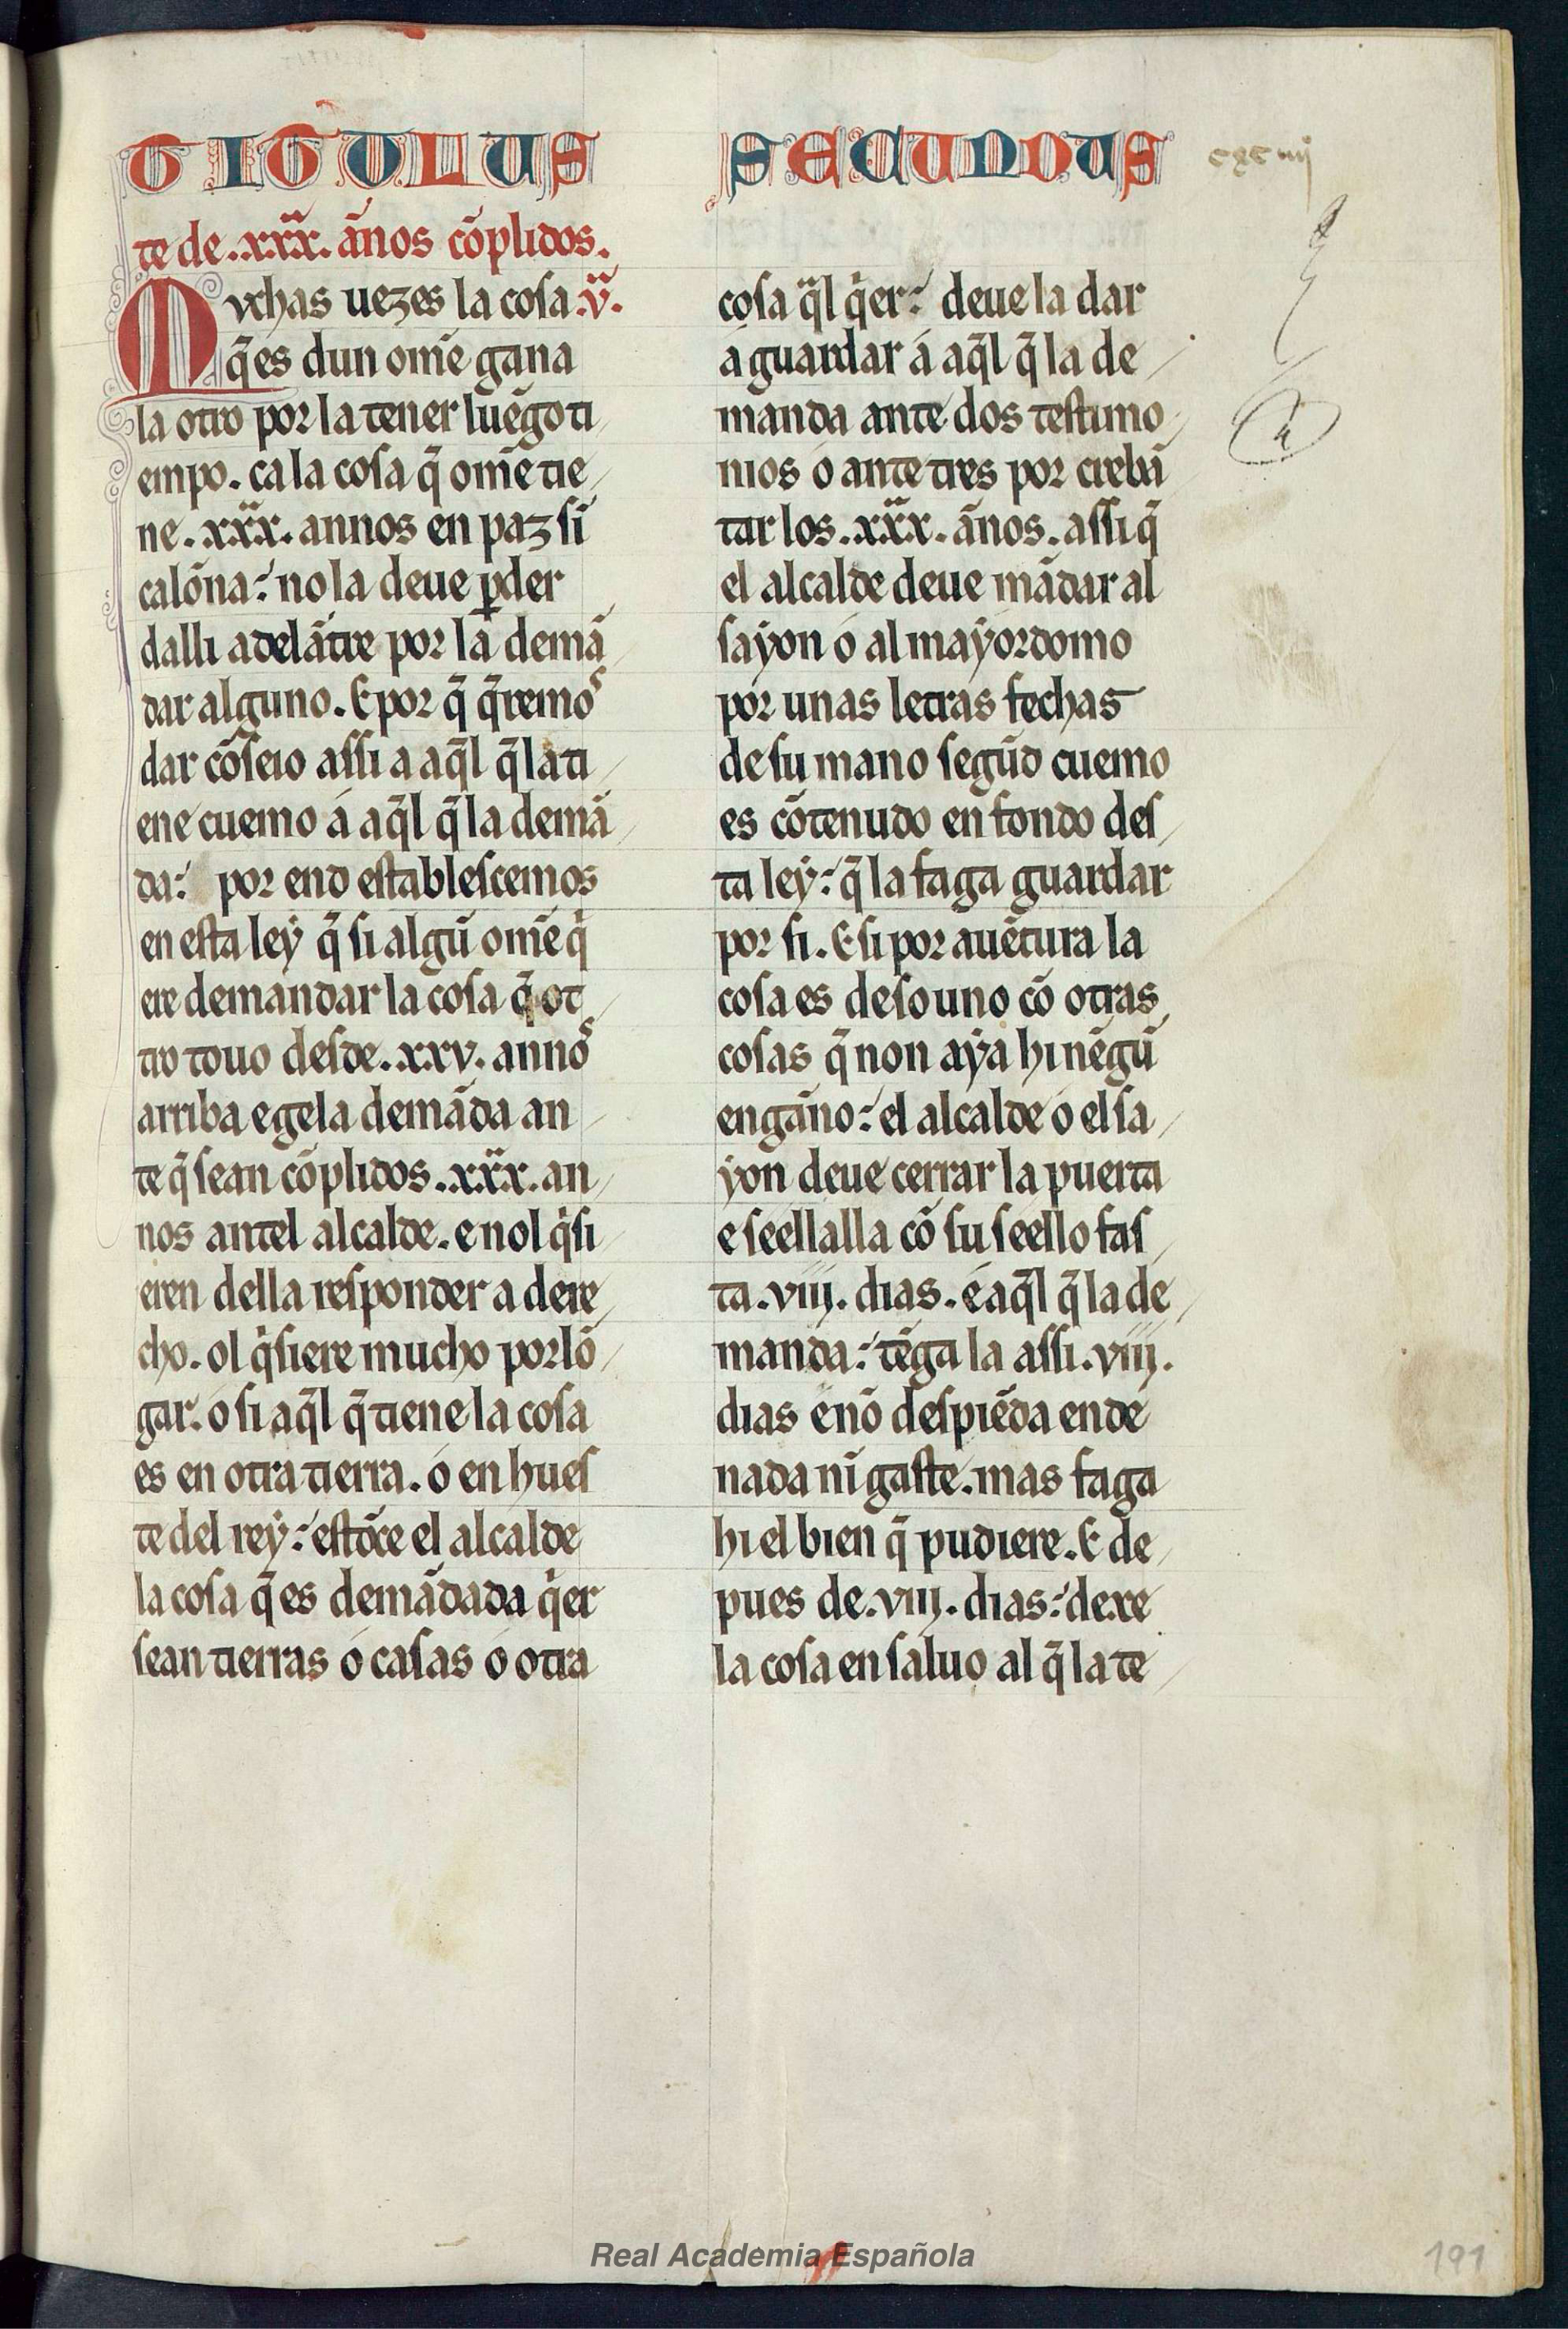 TITULUS SECUNDUS
cxciiij
te de .xxx. ãnos cõplidos.
Muchas uezes la cosa .v.
q̃ es dun om̃e gana
la otro por la tener luẽgo ti
empo. ca la cosa q̃ om̃e tie
ne .xxx. annos en paz si
calõna: no la deue ꝑder
dalli adelãtre por la demã
dar alguno. E por q̃ q̃remos
dar cõseio assi a aq̃l q̃ la ti
ene cuemo á aq̃l q̃ la demã
da: por end establescemos
en esta ley q̃ si algũ om̃e qi
ere demandar la cosa q̃ ot
tro touo desde .xxv. annos
arriba e gela demãda an
te q̃ sean cõplidos .xxx. an
nos antel alcalde. e nol qisi
eren della responder a dere
cho. ol qisiere mucho porlõ
gar. o si aq̃l q̃ tiene la cosa
es en otra tierra. ó en hues
te del rey: estõce el alcalde
la cosa q̃ es demãdada qier
sean tierras ó casas ó otra
cosa qal qier: deue la dar
á guardar á aq̃l q̃ la de
manda ante dos testimo
nios o ante tres por crebã
tar los .xxx. ãnos. assi q̃
el alcalde deue mãdar al
sayon ó al mayordomo
por unas letras fechas
de su mano segũd cuemo
es cõtenudo en fondo des
ta ley: q̃ la faga guardar
por si. E si por auẽtura la
cosa es de so uno cõ otras
cosas q̃ non aya hi nẽgũ
engãno: el alcalde ó el sa
yon deue cerrar la puerta
e seellalla cõ su seello fas
ta .viij. dias. é aq̃l q̃ la de
manda: tẽga la assi .viij.
dias e nõ despiẽda ende
nada nĩ gaste. mas faga
hi el bien q̃ pudiere. E de
pues de .viij. dias: dexe
la cosa en saluo al q̃ la te
Real Academia Española
191